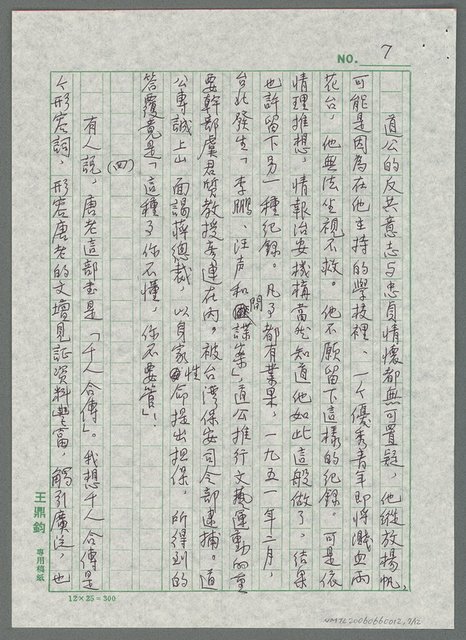 NO. 7
道公的反共意志与忠貞情懷都無可置疑，他縱放揚帆，
可能是因為在他主持的學校裡、一个優秀青年即將濺血雨
花台，他無法坐視不救。他不願留下這樣的紀錄。可是依
情理推想，情報治安機構當然知道他如此這般做了，結果
也許留下另一種紀錄。凡事都有業果，一九五一年二月，
台北發生「李鵬、汪声和間諜案」，道公推行文藝運動的重
要幹部虞君質教授牽連在內。被台湾保安司令部逮捕。道
公專誠上山面謁蔣總裁，以身家性命提出担保，所得到的
答覆竟是「這種事你不懂，你不要管」！
(四)
有人說，唐老這部書是「千人合傳」。我想千人合傳是
个形容詞，形容唐老的文壇見証資料豐富，觸引廣泛，也
王鼎鈞 專用稿紙
12×25=300
NMTL20060660012,7/12